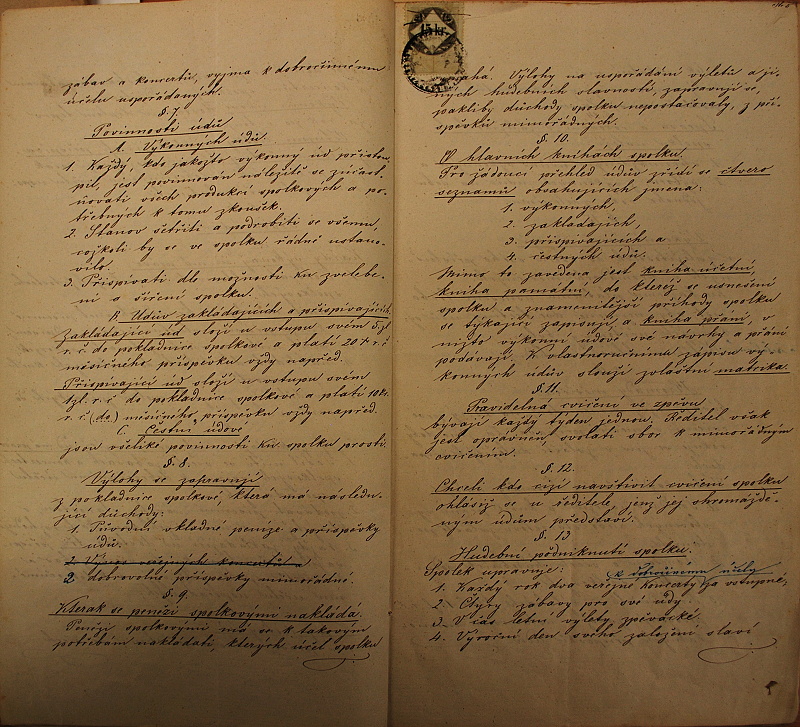 zábav a koncertů, vyjma k dobročinnému
účelu uspořádaných.
§. 7.
Povinnosti údů
A. Výkonných údů.
1. Každý, kdo jakožto výkonný úd přistou-
pil, jest povinnován náležitě se zúčast-
ňovati všech produkcí spolkových a po-
třebných k tomu zkoušek.
2. Stanov šetřiti a podrobiti se všemu,
cožkoli by se ve spolku řádně ustano-
vilo.
3. Přispívati dle možnosti ku zvelebe-
ní a šíření spolku.
B. Údův zakládajících a přispívajících
Zakládající úd složí u vstupu svém 5 zl
r. č do pokladnice spolkové a platí 20 kr r. č
měsíčného příspěvku vždy napřed.
Přispívající úd složí u vstupu svém
1 zl. r. č do pokladnice spolkové a platí 10 kr.
r. č (do) měsíčného příspěvku vždy napřed.
C. Čestní údové
jsou všeliké povinnosti ku spolku prosti.
§. 8.
Výlohy se zapravují
z pokladnice spolkové, která má následu-
jící důchody:
1. Původní vkladné peníze a příspěvky
údů.
2. Výnos veřejných koncertů
2. dobrovolné příspěvky mimořádné.
§. 9.
Kterak se penězi spolkovými nakládá.
Penězi spolkovými má se k takovým
potřebám nakládati, kterých účel spolku
15 kr
vyžahá. Výlohy na uspořádání výletů a ji-
ných hudebních slavností, zapravují se,
pakliby důchody spolku nepostačovaly, z pří-
spěvků mimořádných.
§. 10.
O hlavních knihách spolku.
Pro žádoucí přehled údův zřídí se čtvero
seznamů obsahujících jména:
1. výkonných,
2. zakládajích,
3. přispívajících a
4. čestných údů.
Mimo to zavedena jest kniha účetní,
kniha památní, do kteréž se usnešení
spolku a znamenitější příhody spolku
se týkající zapisují, a kniha přání, v
nížto výkonní údové své návrhy a přání
podávají. K vlastnoručnímu zápisu vý-
konných údův slouží zvláštní matrika.
§. 11.
Pravidelná cvičení ve zpěvu
bývají každý týden jednou. Ředitel však
jest oprávněn, svolati sbor k mimořádným
cvičením.
§. 12.
Chceli kdo cizí navštíviti cvičení spolku
ohlásiž se u ředitele, jenž jej shromáždě-
ným údům představí.
§. 13
Hudební podniknutí spolku.
Spolek upravuje:
k dobročinnému účelu
1. Každý rok dva veřejné koncerty za vstupné;
2. Čtyry zábavy pro své údy
3. V čas letní výlety zpěvácké.
4. Výroční den svého založení slaví